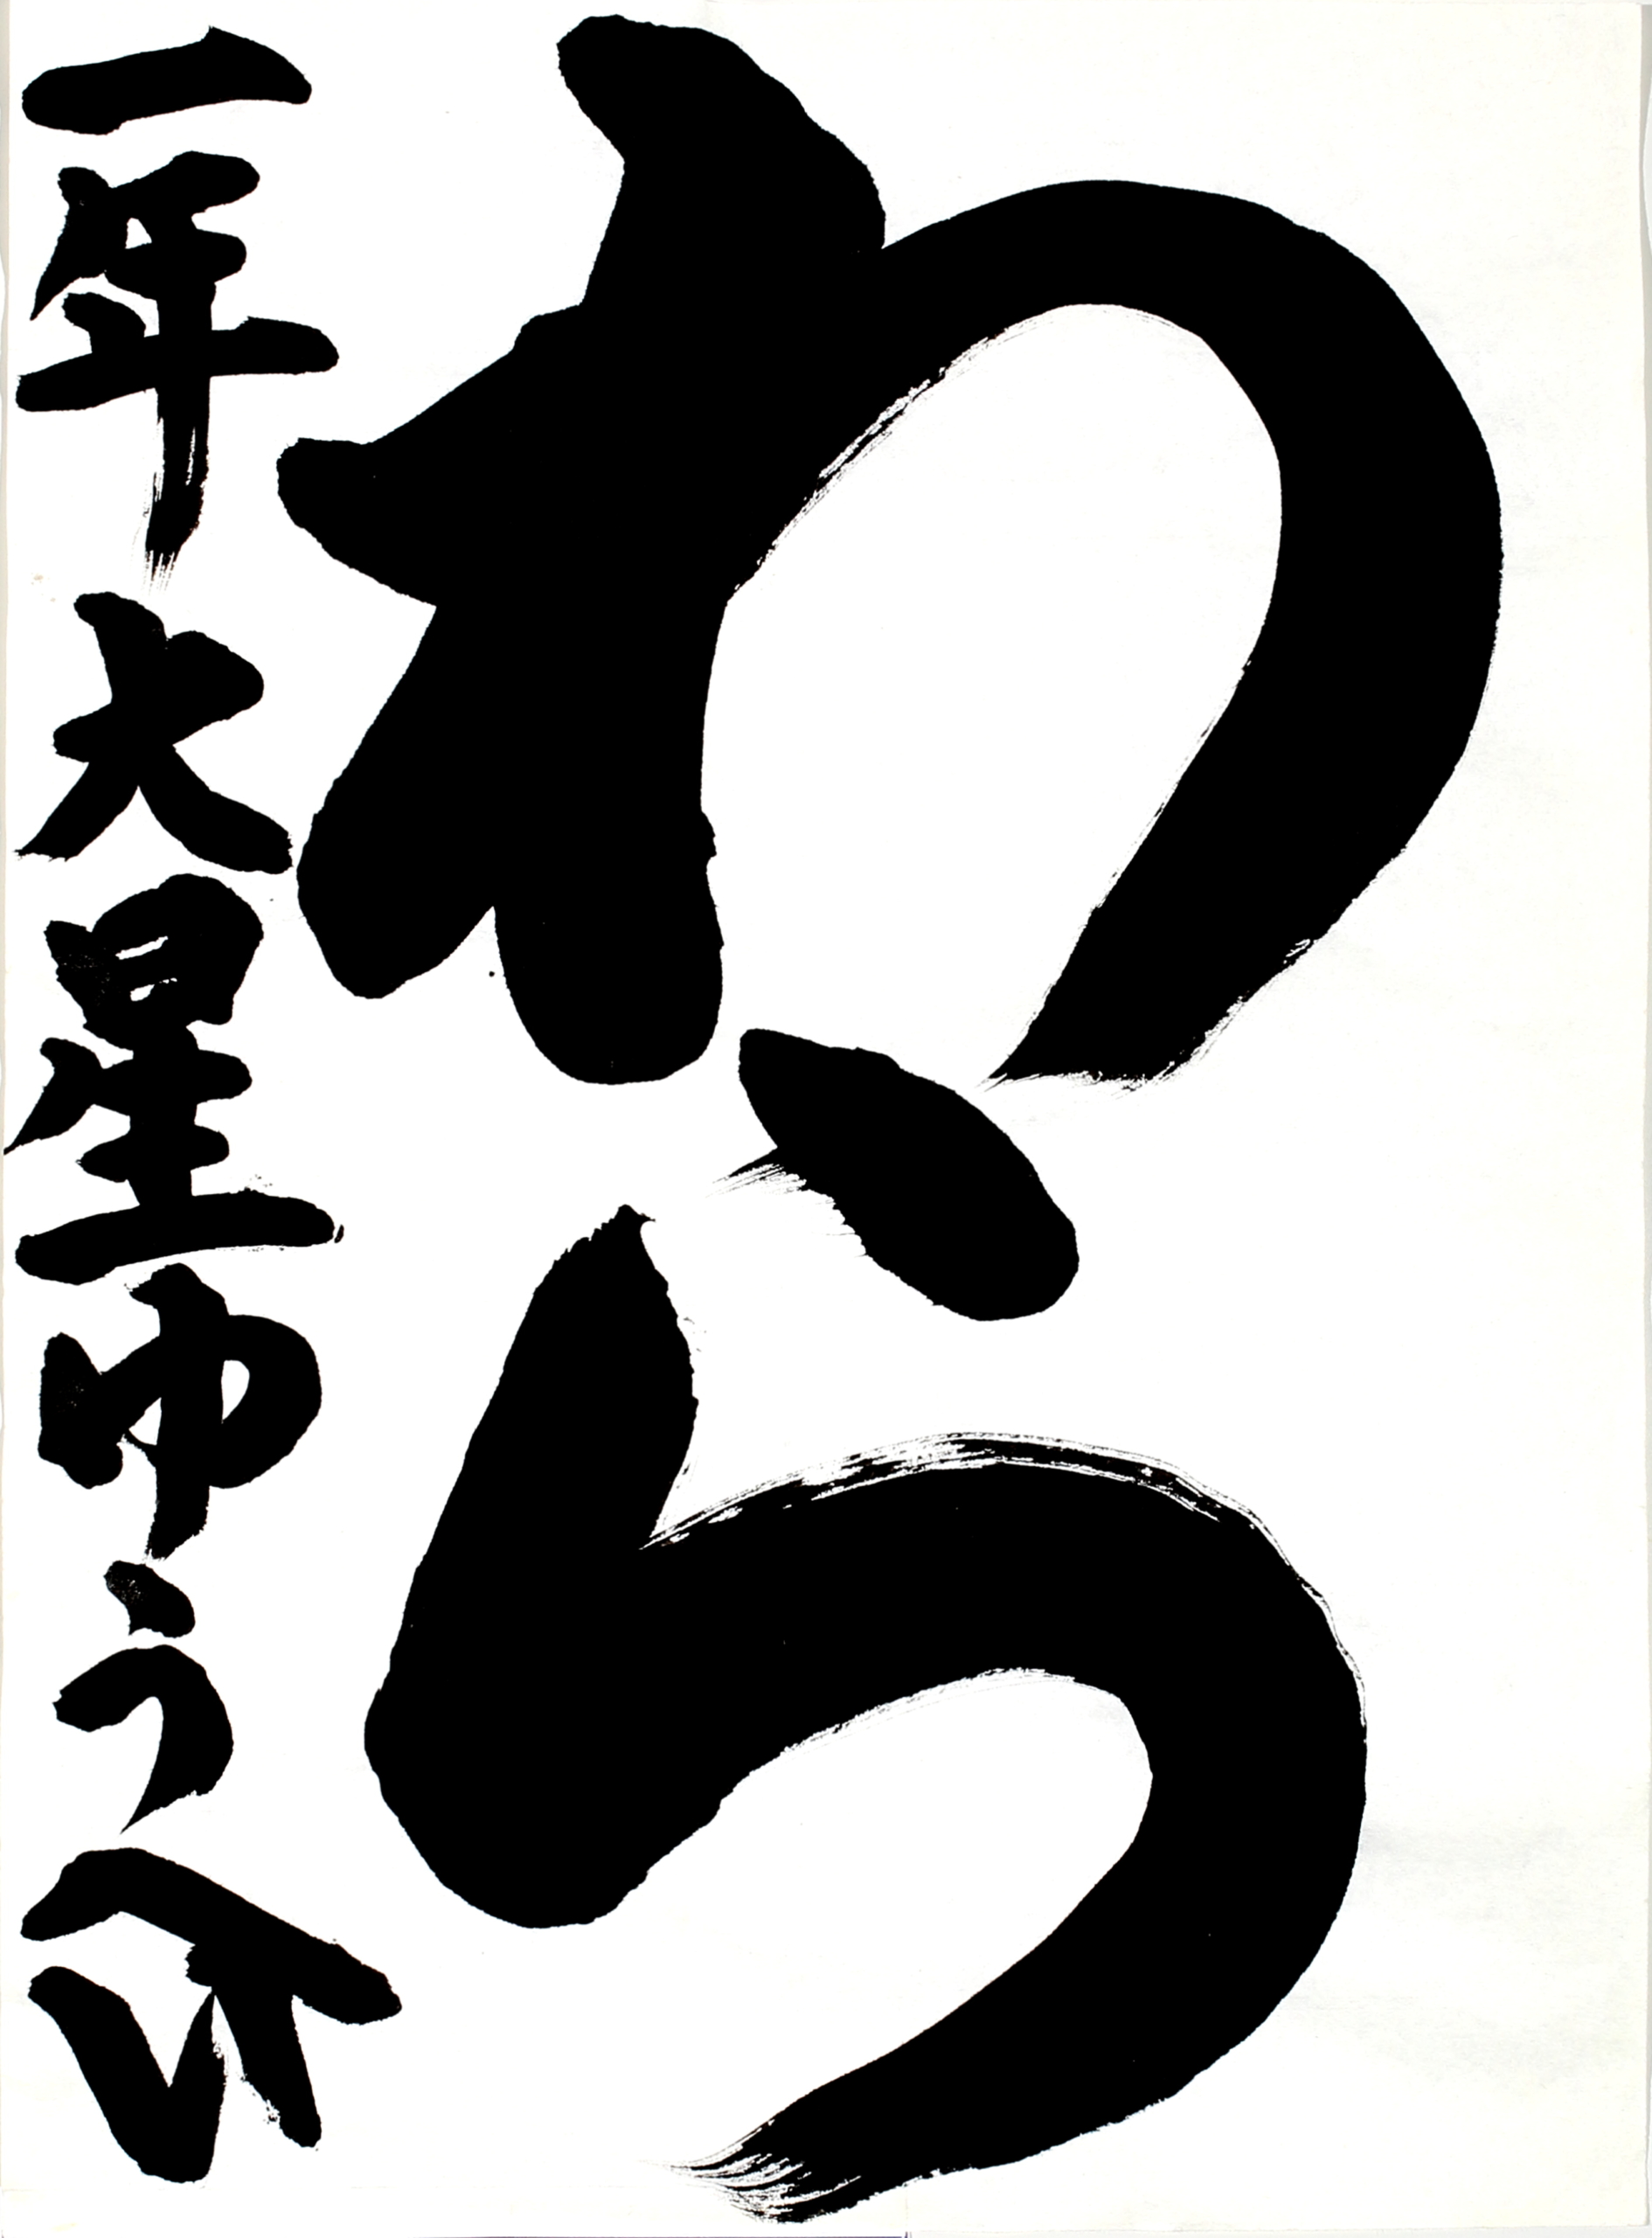 わら
一年大星ゆうへい